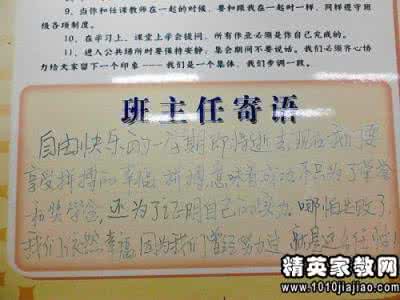 9、当你和任课教师在一起的时候,要和跟我在一起时一样,同样遵守班级各项制度。
10、在学习上,课堂上学会提问,所有作业必须是你自己完成的。
11、进入公共场所时要保持安静;集会期间不要说话。我们必须齐心协力给大家留下一个印象——我们是一个集体,我们步调一致。
班主任寄语
自由快乐的一学期即将逝去,现在我们要
享受拼搏的幸福,拼搏意味着成功不只为了荣誉
和奖学金,还为了证明自己的实力。哪怕失败了
我们依然幸福,因为我们曾经努力过,
精英家教网
www.1010jiajiao.com